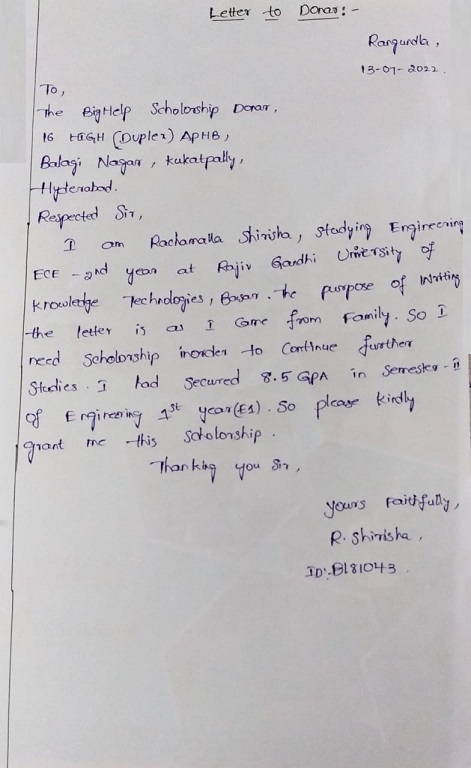 Letter to Donar:-
Rangundla,
13-07-2022.
To,
The BigHelp Scholorship Donar,
16 HIGH (Duplex) APHB,
Balagi Nagar, kukatpally,
Hyderabad.
Respected Sir,
I am Rachamalla Shirisha, studying Engineering
ECE - 2nd year at Rajiv Gandhi University of
knowledge Technologies, Basar. The purpose of Writing
the letter is as I Come from Family. So I
need Scholorship inorder to Continue further
Studies. I had secured 8.5 GPA in Semester-II
of Engineering 1st year(E1). So please kindly
grant me this scholorship.
Thanking you Sir,
yours Faithfully,
R. Shirisha.
ID:-B181043.